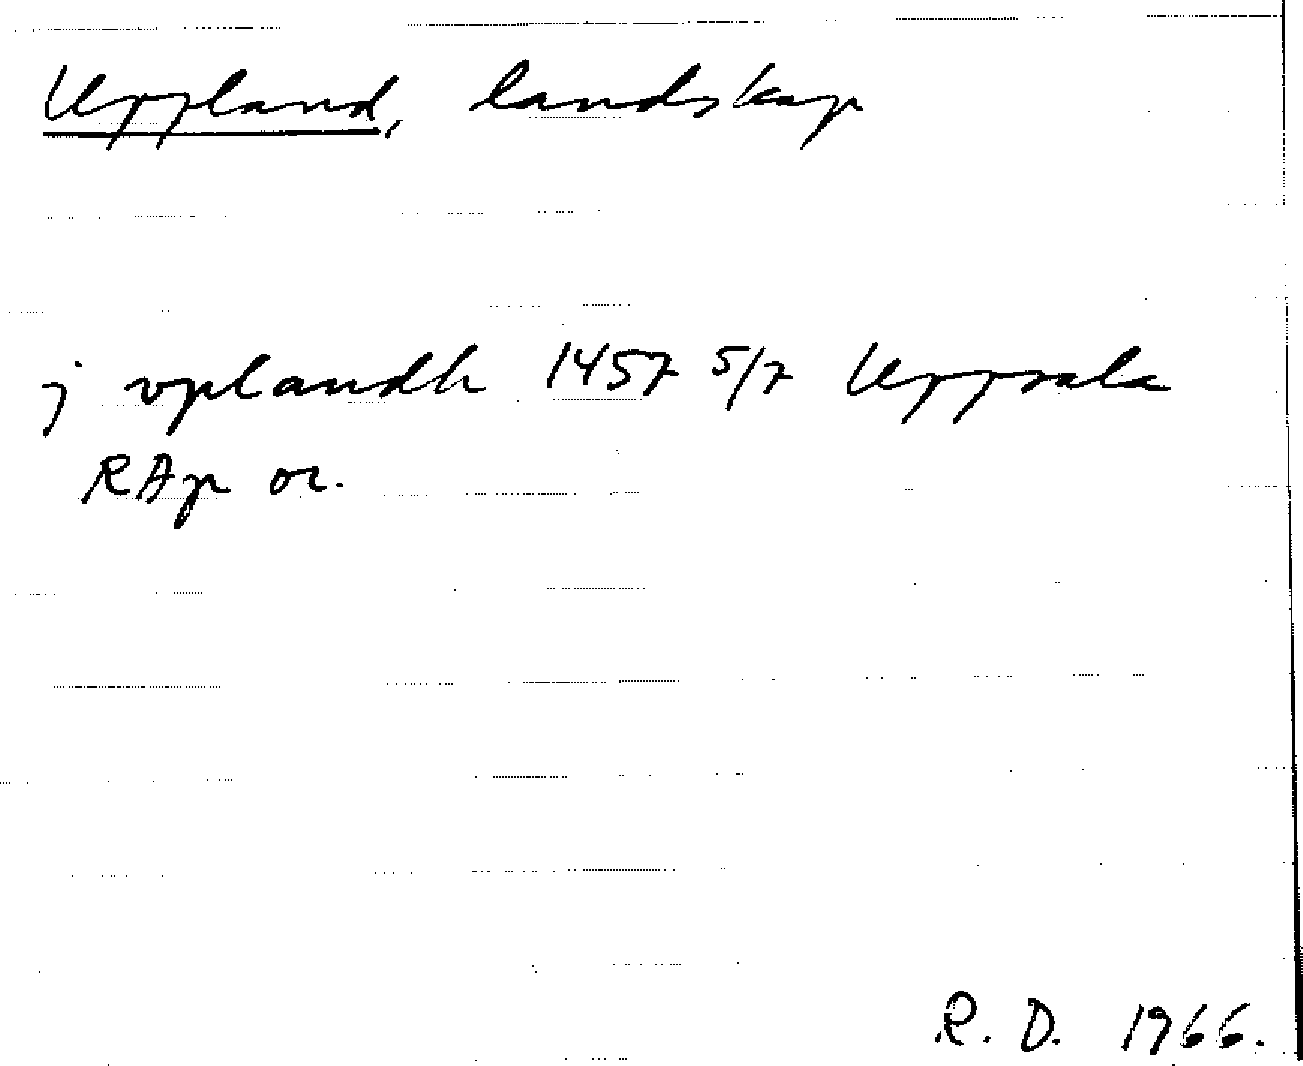 Uppland, landskap
j vplandh 1457 5/7 Uppsala
RAp or.
R. D. 1966.